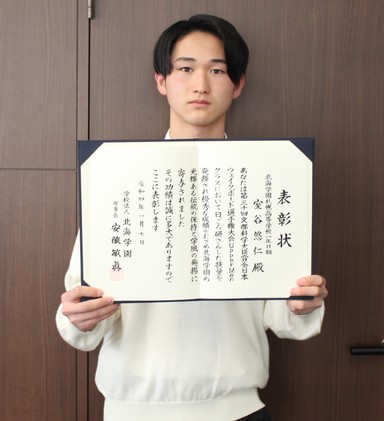 表彰状
北海学園札幌高等学校
室谷悠仁殿
あなたは第三十四文部科学大臣賞全日本
ウェイクボード選手権大会UpperMen
クラスにおいて日ごろ研さんした技量を
発揮され優秀な成績をおさめ北海学園の
光輝ある伝統の保持と学風の発揚に
寄与されました
その功績は誠に多大でありますので
ここに表彰します
令和四年一月七日
学校法人 北海学園
理事長 安酸敏眞